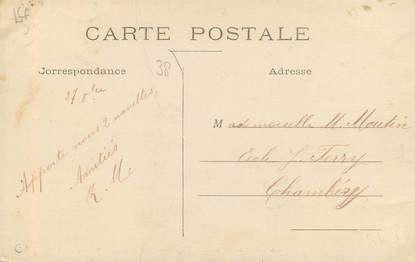 CARTE POSTALE
38
Correspondance
Adresse
27 8bre
Apporte nous 2 navettes
Amitiés
Mademoiselle M. Moutin
Ecole J. Ferry
Chambéry